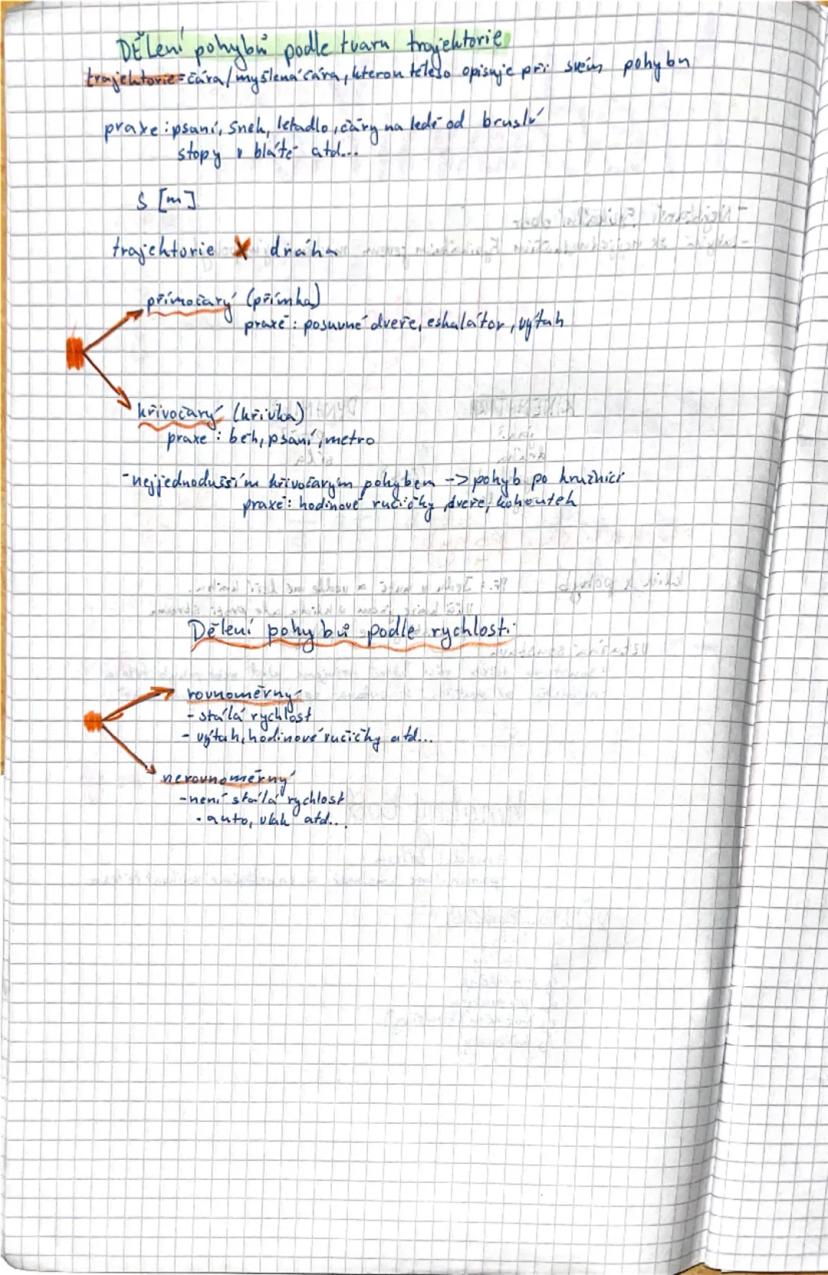 Dělení pohybů podle tvaru trajektorie
trajektorie = čára/myšlená čára, kterou těleso opisuje při svém pohybu
praxe: psaní, sníh, letadlo, čáry na ledě od bruslí
stopy v blátě atd...
s [m]
trajektorie × dráha
přímočarý (přímka)
praxe: posuvné dveře, eskalátor, výtah
křivočarý (křivka)
praxe: běh, psaní, metro
- nejjednodušším křivočarým pohybem -> pohyb po kružnici
praxe: hodinové ručičky, dveře, kohoutek
Dělení pohybů podle rychlosti
rovnoměrný
- stálá rychlost
- výtah, hodinové ručičky atd...
nerovnoměrný
- není stálá rychlost
- auto, vlak atd...